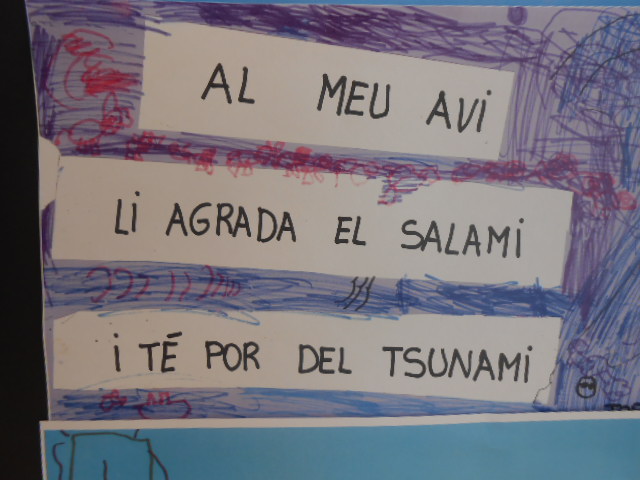 AL MEU AVI
LI AGRADA EL SALAMI
I TÉ POR DEL TSUNAMI